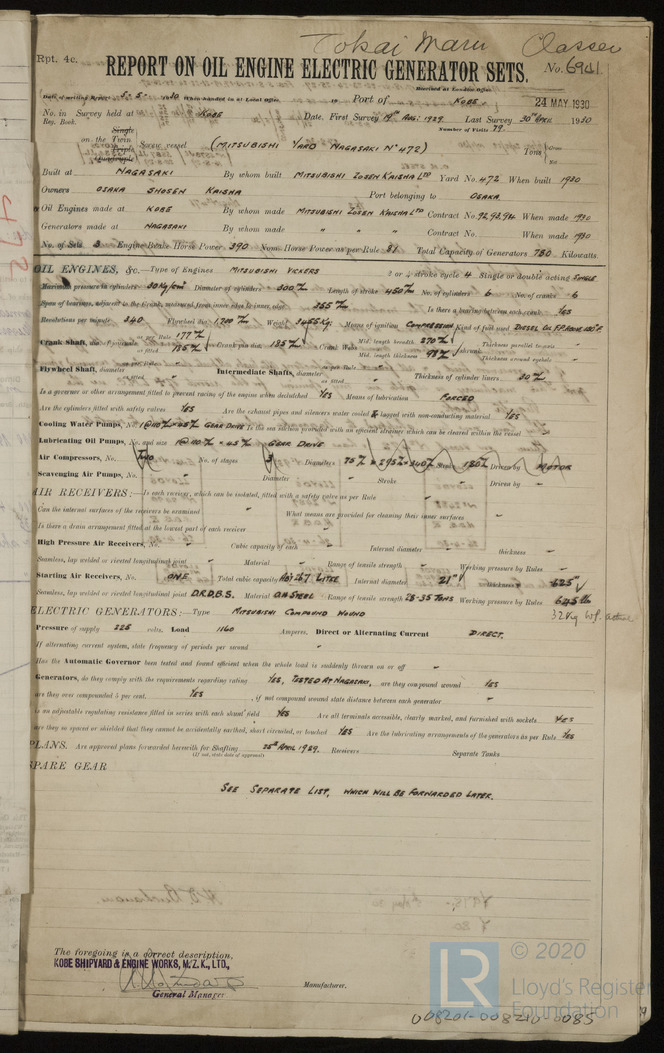 Tokai Maru Classen
Rpt. 4c.
REPORT ON OIL ENGINE ELECTRIC GENERATOR SETS.
No. 6941
Received at London Office
Date of writing Report 5-5-1930 When handed in at Local Office 19 Port of KOBE 24 MAY 1930
No. in Survey held at KOBE Date, First Survey Last Survey 30th APRIL 1930
Reg. Book. Number of Visits 79.
Single
on the Twin Screw vessel (MITSUBISHI YARD NAGASAKI No 472) Tons
Triple
Quadruple
Built at NAGASAKI By whom built MITSUBISHI ZOSEN KAISHA LTD Yard No. 472 When built 1930
Owners OSAKA SHOSEN KAISHA Port belonging to OSAKA.
Oil Engines made at KOBE By whom made MITSUBISHI ZOSEN KAISHA LTD Contract No. 92,93,94 When made 1930
Generators made at NAGASAKI By whom made " " " Contract No. When made 1930
No. of Sets 3 Engine Brake Horse Power 390 Nom. Horse Power as per Rule 81 Total Capacity of Generators 780 Kilowatts.
OIL ENGINES, &c. Type of Engines MITSUBISHI VICKERS 2 or 4 stroke cycle 4 Single or double acting SINGLE
Maximum pressure in cylinders Diameter of cylinders 300 Length of stroke 450 No. of cylinders 6 No. of cranks 6
Span of bearings, adjacent to the Crank, measured from inner edge to inner edge 355 Is there a bearing between each crank YES
Revolutions per minute 340 Flywheel dia. Weight Means of ignition COMPRESSION Kind of fuel used DIESEL OIL
Crank Shaft, dia. of journals as per Rule 177 as fitted 185 Crank pin dia. 185 Crank Webs Mid. length breadth 270 Thickness parallel to axis -
Mid. length thickness 98 shrunk Thickness around eyehole -
Flywheel Shaft, diameter as per Rule as fitted Intermediate Shafts, diameter as per Rule as fitted Thickness of cylinder liners 30
Is a governor or other arrangement fitted to prevent racing of the engine when declutched YES Means of lubrication FORCED
Are the cylinders fitted with safety valves YES Are the exhaust pipes and silencers water cooled & lagged with non-conducting material YES
Cooling Water Pumps, No. GEAR DRIVE Is the sea suction provided with an efficient strainer which can be cleared within the vessel
Lubricating Oil Pumps, No. and size GEAR DRIVE
Air Compressors, No. TWO No. of stages 3 Diameters Stroke 180 Driven by MOTOR
Scavenging Air Pumps, No. - Diameter - Stroke - Driven by -
AIR RECEIVERS:—Is each receiver, which can be isolated, fitted with a safety valve as per Rule
Can the internal surfaces of the receivers be examined What means are provided for cleaning their inner surfaces
Is there a drain arrangement fitted at the lowest part of each receiver
High Pressure Air Receivers, No. - Cubic capacity of each Internal diameter thickness -
Seamless, lap welded or riveted longitudinal joint Material Range of tensile strength Working pressure by Rules -
Starting Air Receivers, No. ONE Total cubic capacity LITRE Internal diameter 21" thickness .625"
Seamless, lap welded or riveted longitudinal joint D.R.D.B.S. Material O.H. STEEL Range of tensile strength 28-35 TONS Working pressure by Rules
ELECTRIC GENERATORS:—Type MITSUBISHI COMPOUND WOUND
Pressure of supply 225 volts. Load 1160 Amperes. Direct or Alternating Current DIRECT.
If alternating current system, state frequency of periods per second "
Has the Automatic Governor been tested and found efficient when the whole load is suddenly thrown on or off
Generators, do they comply with the requirements regarding rating YES, TESTED AT NAGASAKI, are they compound wound YES
are they over compounded 5 per cent. YES , if not compound wound state distance between each generator
Is an adjustable regulating resistance fitted in series with each shunt field YES Are all terminals accessible, clearly marked, and furnished with sockets YES
are they so spaced or shielded that they cannot be accidentally earthed, short circuited, or touched YES Are the lubricating arrangements of the generators as per Rule YES
PLANS. Are approved plans forwarded herewith for Shafting 25th APRIL 1929. Receivers Separate Tanks
(If not, state date of approval)
SPARE GEAR
SEE SEPARATE LIST, WHICH WILL BE FORWARDED LATER.
The foregoing is a correct description.
KOBE SHIPYARD & ENGINE WORKS, M.Z.K., LTD.,
Manufacturer.
General Manager
© 2020
LR
Lloyd's Register
Foundation
008201-008210-0085